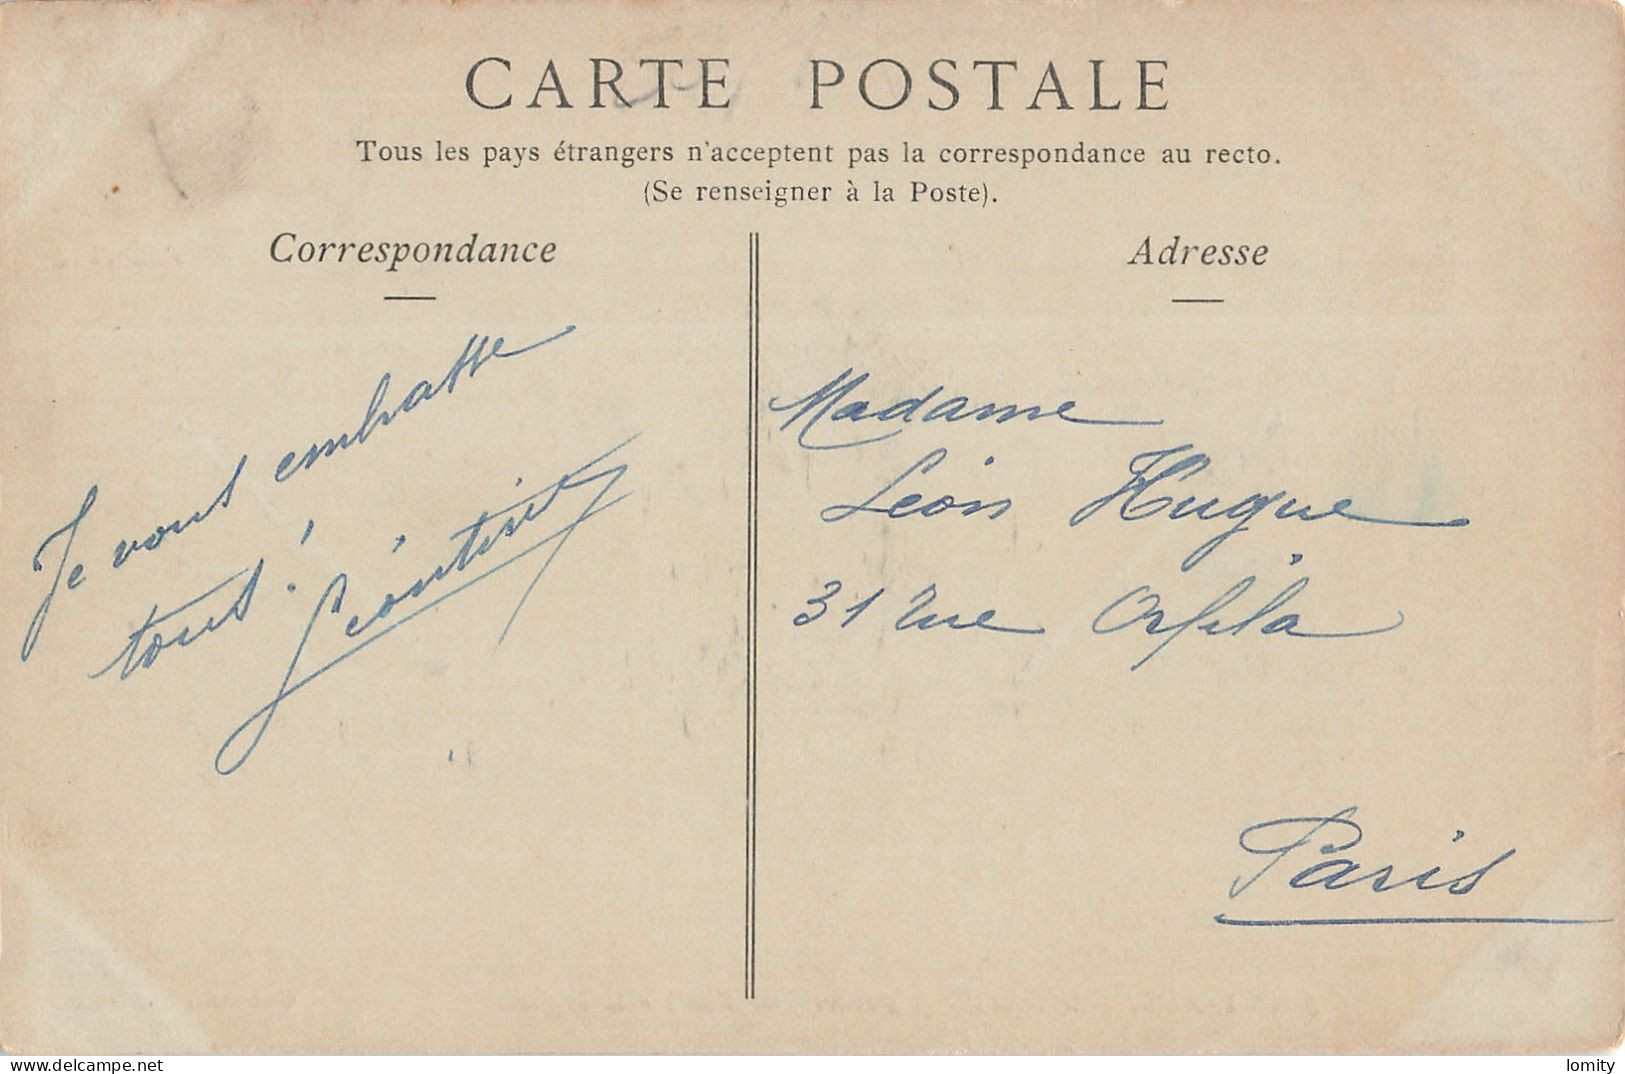 CARTE POSTALE
Tous les pays étrangers n'acceptent pas la correspondance au recto.
(Se renseigner à la Poste).
Correspondance
Je vous embrasse
tous !
Léontine
Adresse
Madame
Léon Hugue
31 rue Orfila
Paris
lomity